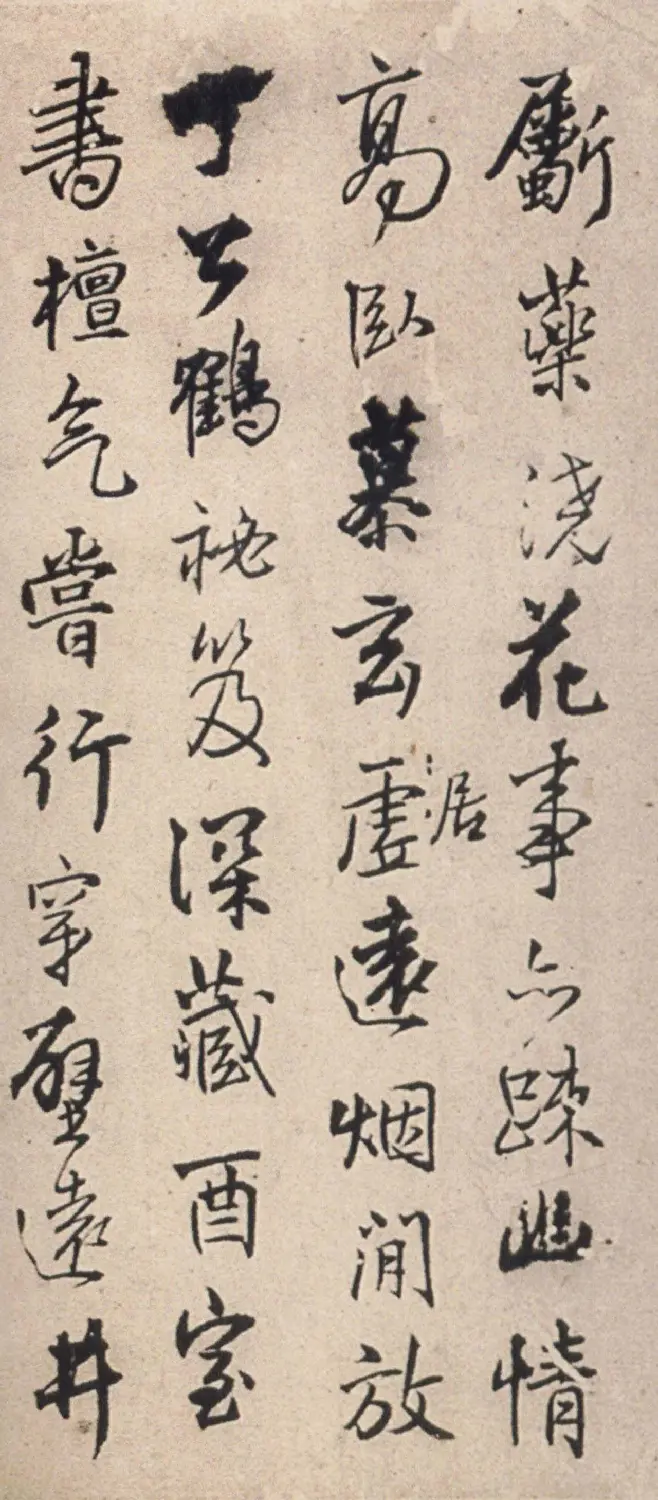 斸藥浇花事亦踈幽情
高臥慕玄虛居遠烟澗放
丁公鶴祕笈深藏酉室
書檀气嘗行穿壁遠井